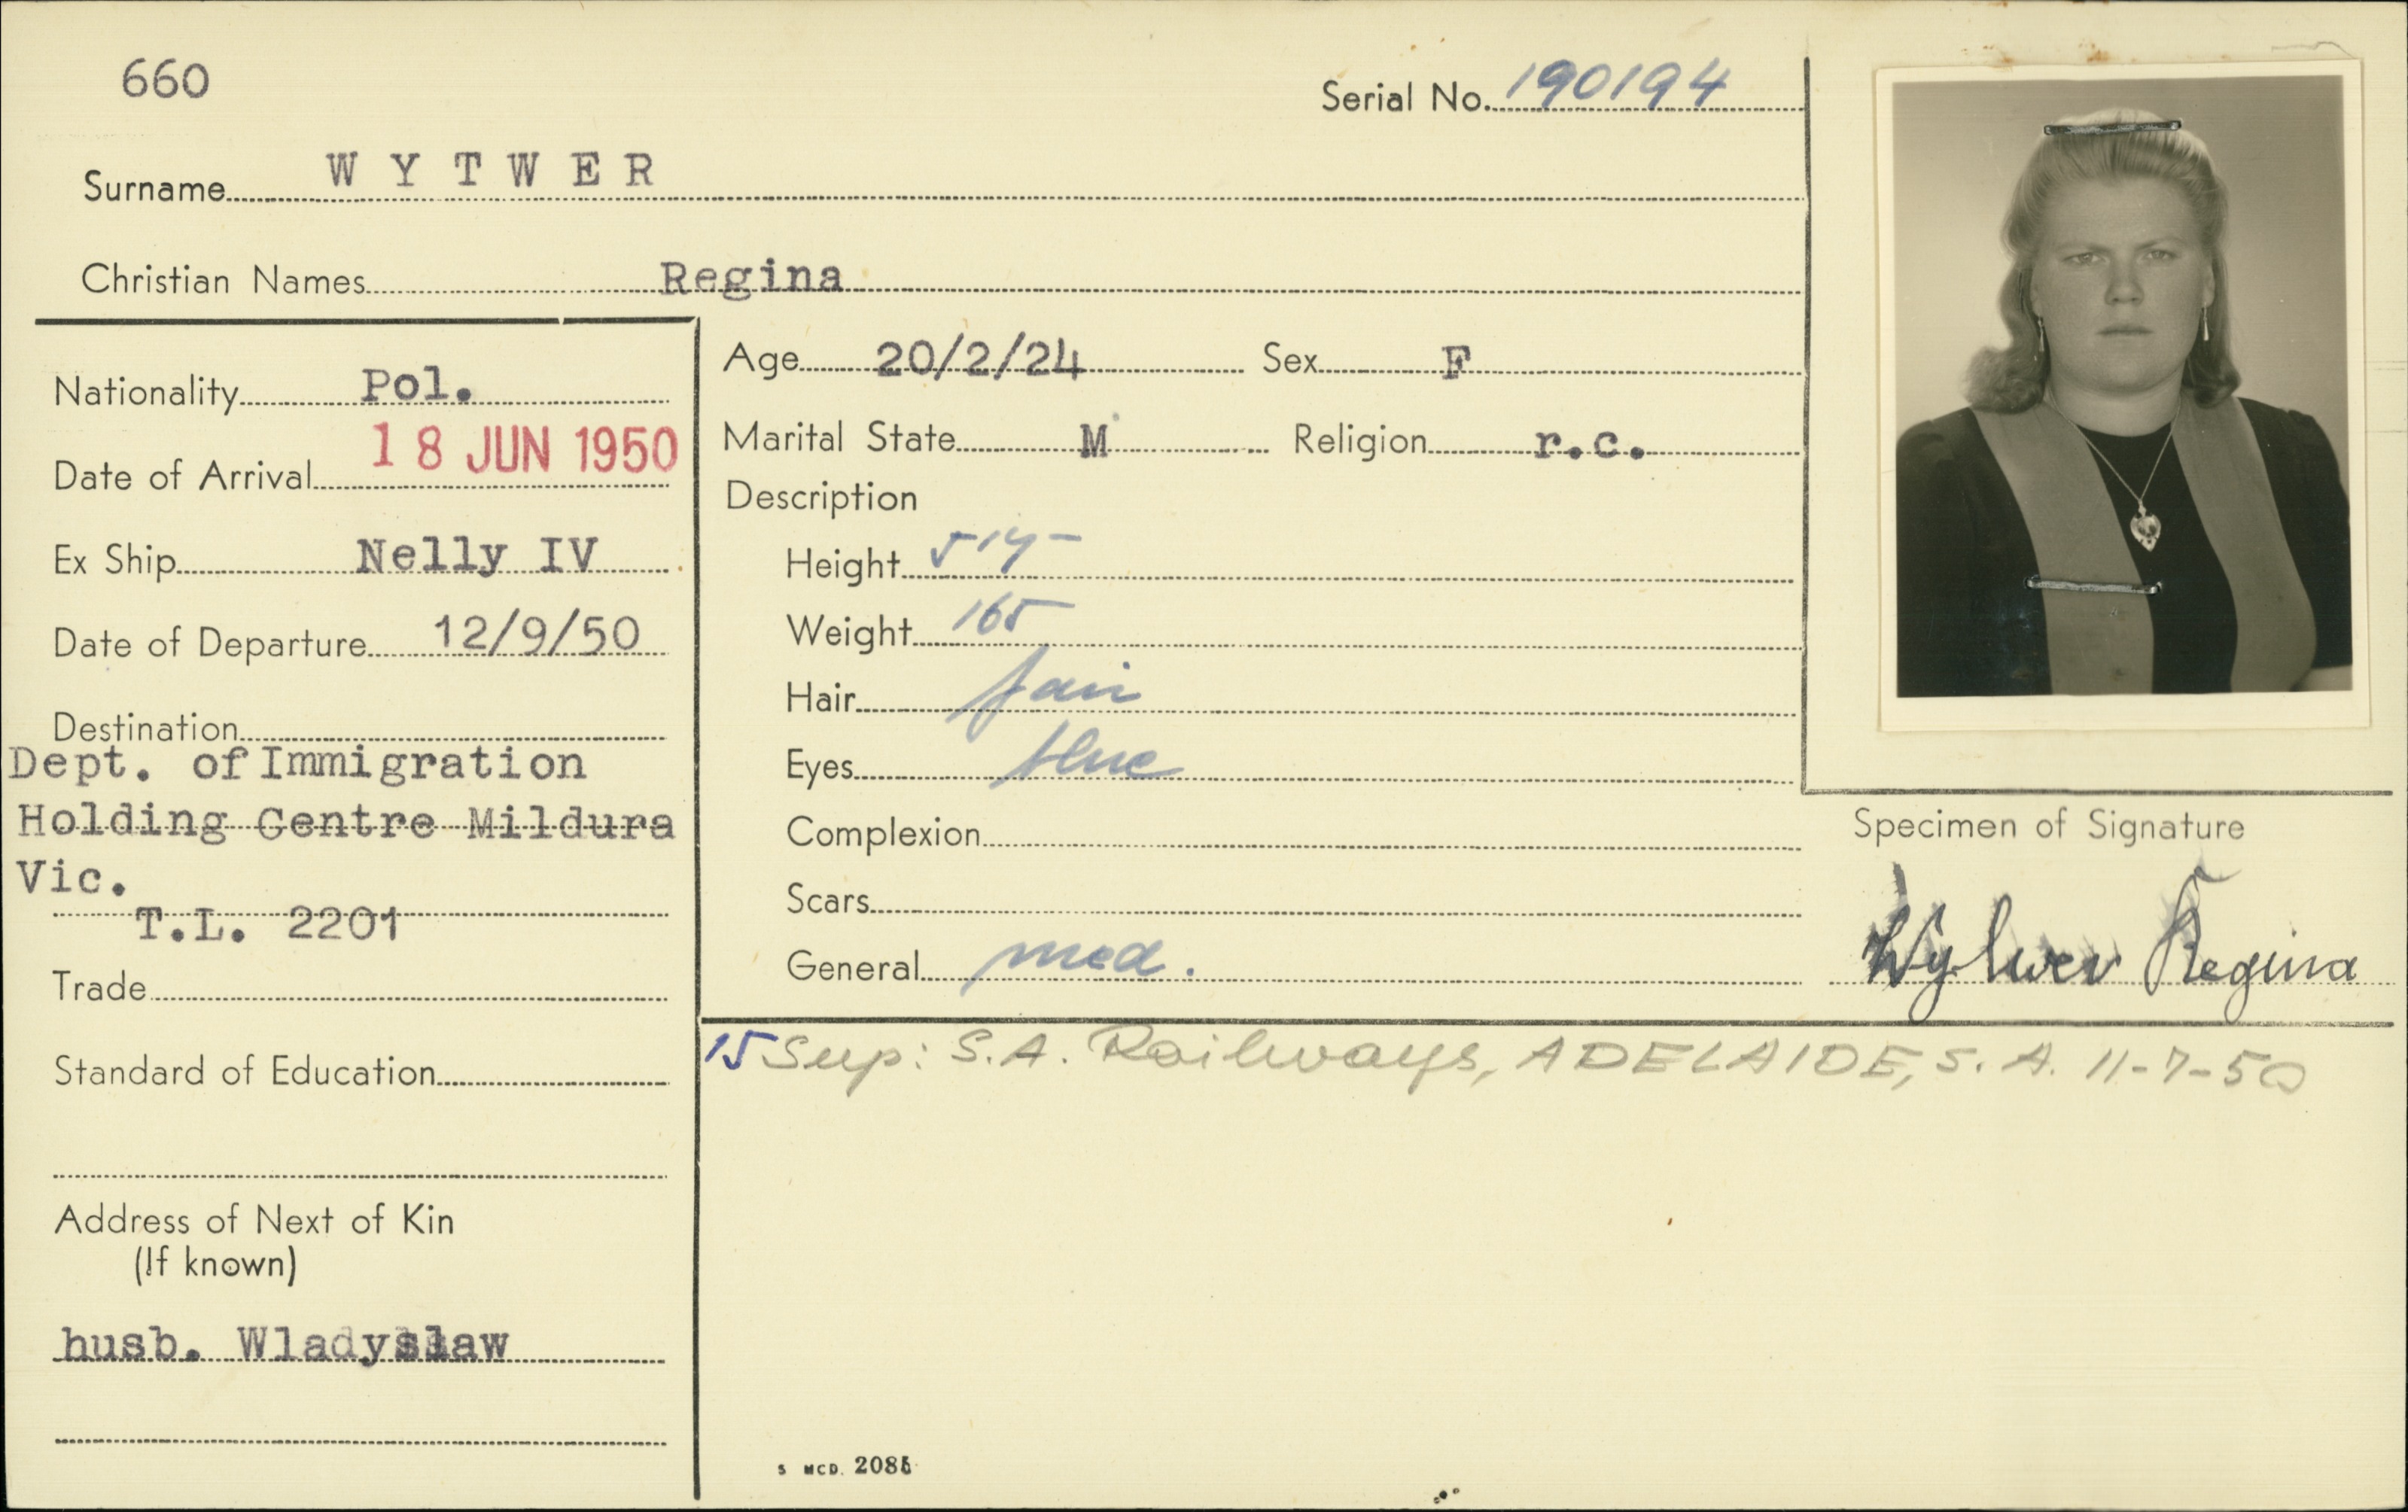 660
Serial No. 190194
Surname WYTWER
Christian Names Regina
Nationality Pol.
Date of Arrival 18 JUN 1950
Ex Ship Nelly IV
Date of Departure 12/9/50
Destination
Dept. of Immigration
Holding Centre Mildura
Vic.
T.L. 2201
Trade
Standard of Education
Address of Next of Kin
(If known)
husb. Wladyslaw
Age 20/2/24 Sex F
Marital State M Religion r.c.
Description
Height
Weight 165
Hair fair
Eyes blue
Complexion
Scars
General med.
Specimen of Signature
Wytwer Regina
15 Sup: S.A. Railways, ADELAIDE, S.A. 11-7-50
S MCD. 2086